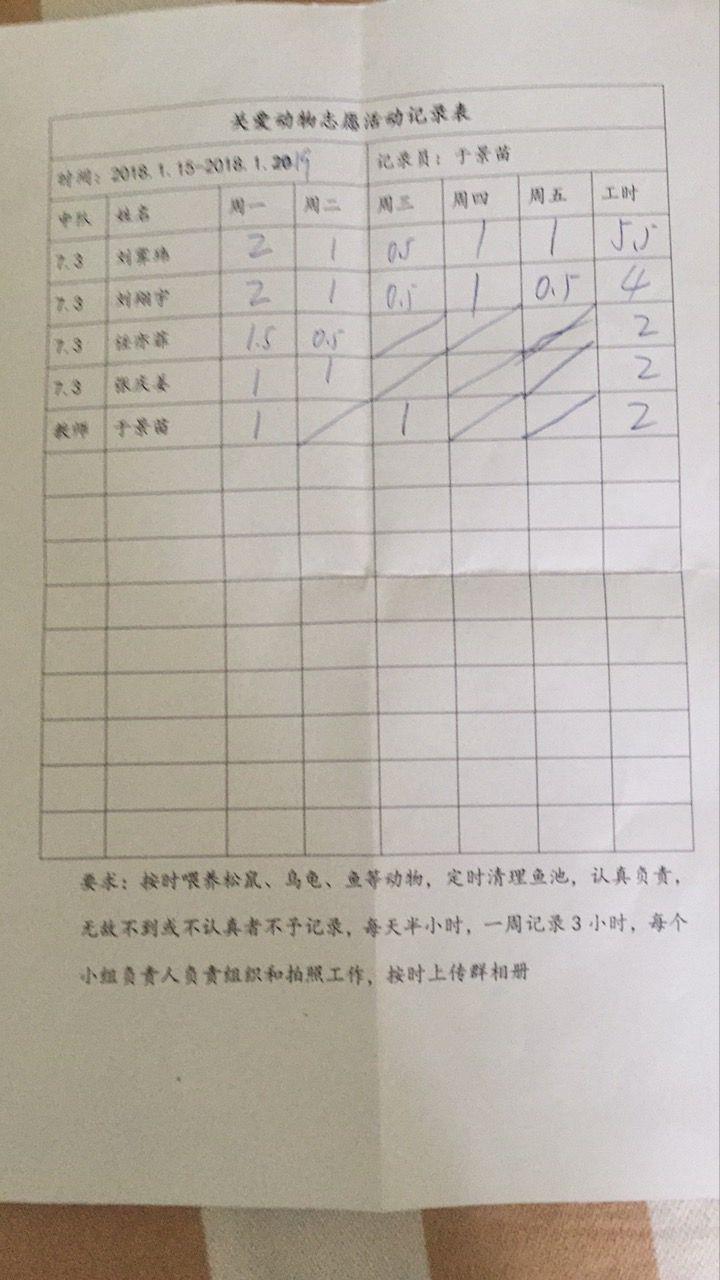 关爱动物志愿活动记录表
时间：2018.1.15-2018.1.2019 记录员：于景苗
中队 姓名 周一 周二 周三 周四 周五 工时
7.3 刘霁炜 2 1 0.5 1 1 5.5
7.3 刘翔宇 2 1 0.5 1 0.5 4
7.3 任亦菲 1.5 0.5 2
7.3 张庆姜 1 1 2
教师 于景苗 1 1 2
要求：按时喂养松鼠、乌龟、鱼等动物，定时清理鱼池，认真负责，
无故不到或不认真者不予记录，每天半小时，一周记录3小时，每个
小组负责人负责组织和拍照工作，按时上传群相册